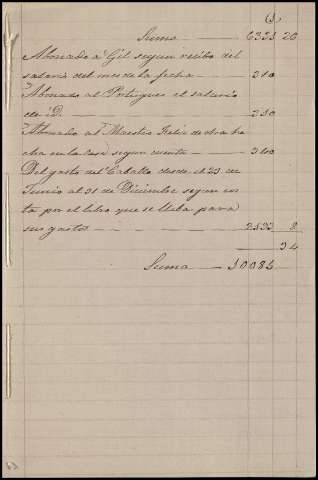 (3)
Suma — 6323 20
Abonado á Gil segun recibo del
salario del mes de la fecha — 340
Abonado al Portugues el salario
de "D. — 340
Abonado al Maestro Felis de obra he
cha en la casa segun cuenta — 340
Del gasto del Caballo desde el 23 de
Junio al 31 de Diciembre segun cu
ta por el libro que se lleba para
sus gastos — 2533 8
34
Suma —
63